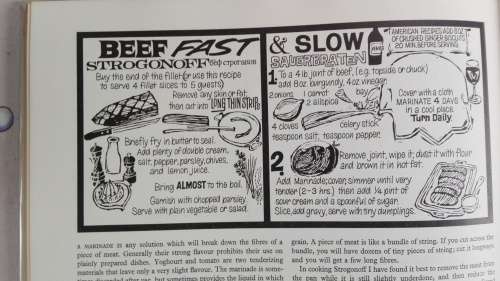 BEEF FAST
STROGONOFF
Buy the end of the fillet (or use this recipe
to serve 4 fillet slices to 5 guests)
Remove any skin or fat,
then cut into LONG THIN STRIPS
Briefly fry in butter to seal.
Add plenty of double cream,
salt, pepper, parsley, chives,
and lemon juice.
Bring ALMOST to the boil.
Garnish with chopped parsley.
Serve with plain vegetable or salad.
& SLOW
SAUERBRATEN
AMERICAN RECIPES ADD 8OZ
OF CRUSHED GINGER BISCUITS
20 MIN. BEFORE SERVING
1. To a 4 lb joint of beef, (e.g. topside or chuck)
add 8oz. burgundy, 4oz vinegar,
2 onions 1 carrot bay
2 allspice
4 cloves celery stick
teaspoon salt, teaspoon pepper.
Cover with a cloth
MARINATE 4 DAYS
in a cool place.
Turn Daily.
2. Remove joint, wipe it; dust it with flour
and brown it in hot fat.
Add Marinade; cover, simmer until very
tender (2-3 hrs.) then add ¼ pint of
sour cream and a spoonful of sugar.
Slice, add gravy, serve with tiny dumplings.
A MARINADE IS any solution which will break down the fibres of a
piece of meat. Generally their strong flavour prohibits their use on
plainly prepared dishes. Yoghourt and tomato are two tenderizing
materials that leave only a very slight flavour. The marinade is some-
times discarded after use, but sometimes provides the liquid in which
grain. A piece of meat is like a bundle of string. If you cut across the
bundle, you will have dozens of tiny pieces of string; cut it longways
and you will get a few long fibres.
In cooking Strogonoff I have found it best to remove the meat from
the pan while it is still slightly underdone, and then reduce the